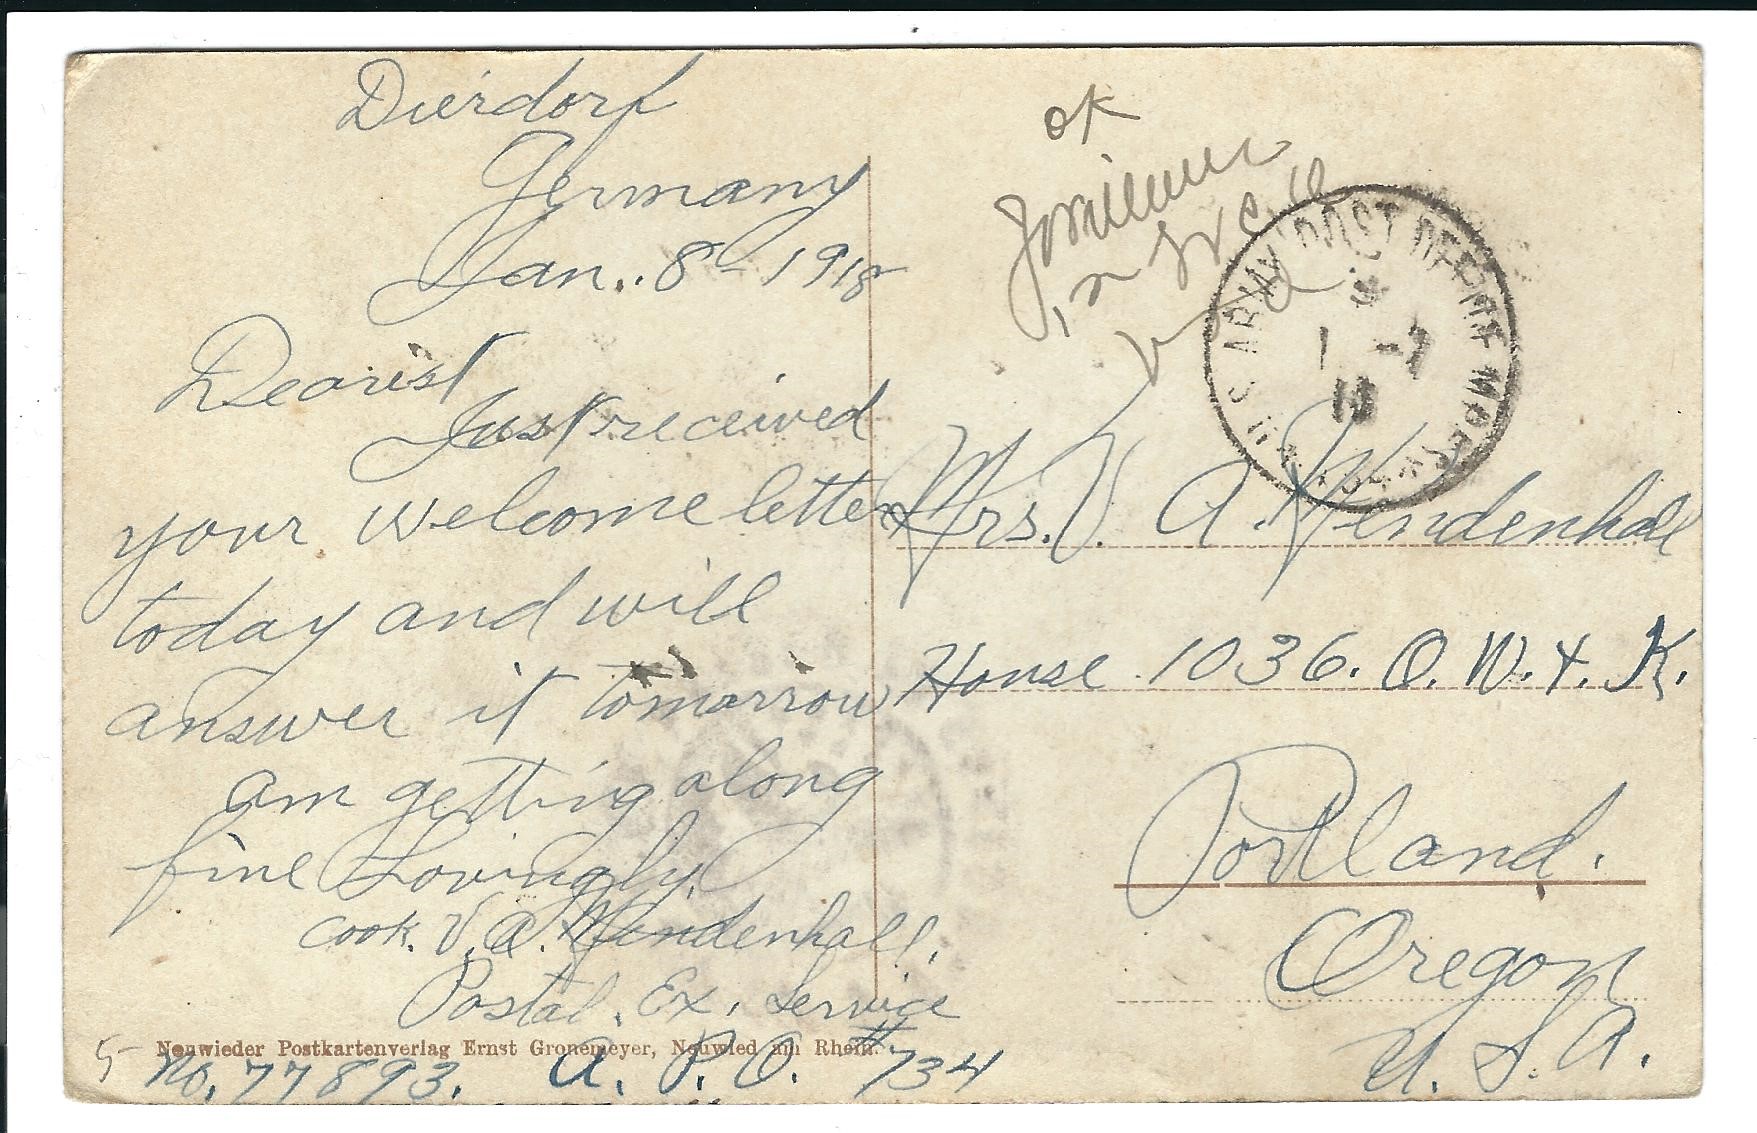 Dierdorf
Germany
Jan. 8 - 1918
Dearest
Just received
your welcome letter
today and will
answer it tomorrow
am getting along
fine Lovingly
Cook. V. A. Mendenhall.
Postal. Ex. Service
No. 77893. A. P. O. #734
5
Neuwieder Postkartenverlag Ernst Gronemeyer, Neuwied am Rhein.
OK
U.S. ARMY POST OFFICE M.P.E.S.
1 -
Mrs. V. A. Mendenhall
House 1036. O. W. & K.
Portland.
Oregon
U. S. A.